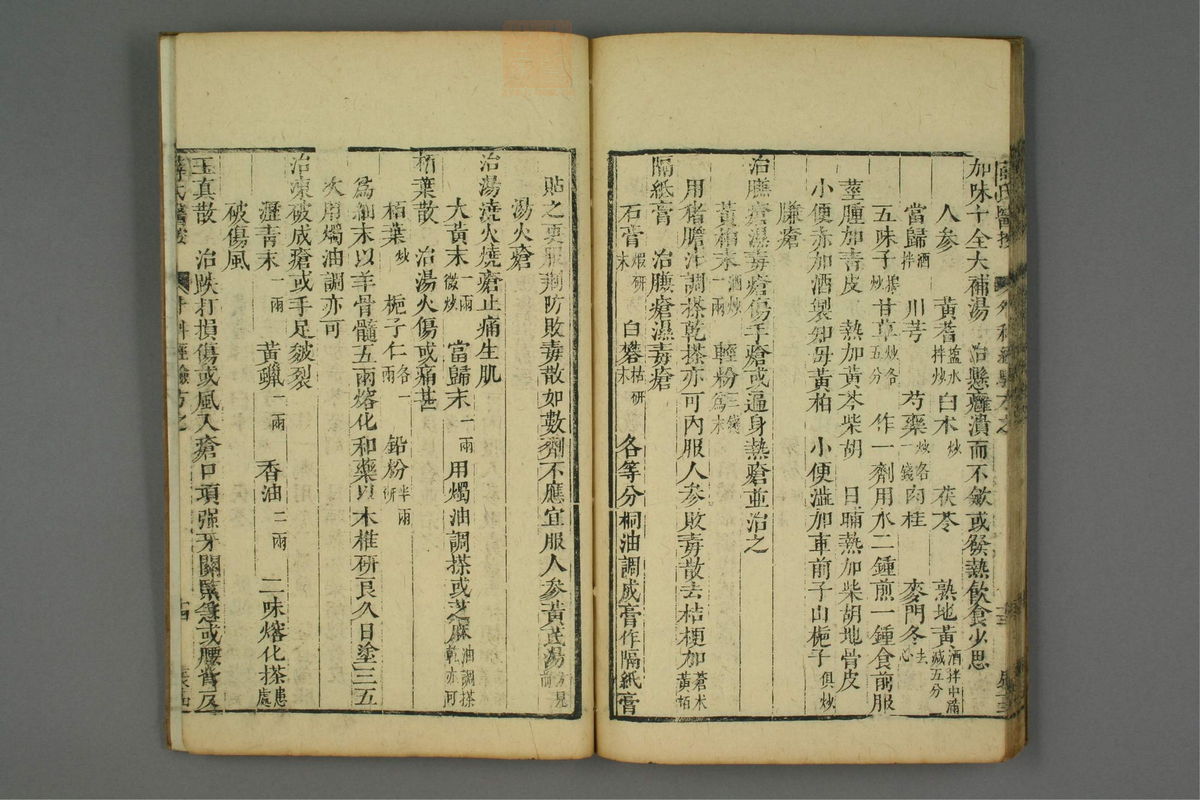 加味十全大補湯 治懸癰潰而不斂或發熱飲食少思
人參 黃蓍鹽水拌炒 白术炒 茯苓 熟地黃酒拌中滿減五分
當歸酒拌 川芎 芍藥炒各一錢 肉桂 麥門冬去心
五味子 甘草炒各五分 作一劑用水二鍾煎一鍾食前服
莖腫加青皮 熱加黃芩柴胡 日晡熱加柴胡地骨皮
小便赤加酒製知母黃柏 小便澁加車前子山梔子俱炒
臁瘡
治臁瘡濕毒瘡傷手瘡或遍身熱瘡並治之
黃柏末酒炒一兩 輕粉三錢爲末
用猪膽汁調搽乾搽亦可內服人參敗毒散去桔梗加蒼术黃栢
隔紙膏 治臁瘡濕毒瘡
石膏煆研末 白礬枯研末 各等分桐油調成膏作隔紙膏
貼之更服荊防敗毒散如數劑不應宜服人參黃芪湯方見前
湯火瘡
治湯澆火燒瘡止痛生肌
大黃末一兩微炒 當歸末一兩 用燭油調搽或芝麻油調搽乾亦可
栢葉散 治湯火傷或痛甚
栢葉炒 梔子仁各一兩 鉛粉半兩研
爲細末以羊骨髓五兩熔化和藥以木椎研良久日塗三五
次用燭油調亦可
治凍破成瘡或手足皴裂
瀝青末一兩 黃蠟一兩 香油二兩 二味熔化搽患處
破傷風
玉真散 治跌打損傷或風入瘡口項强牙關緊急或腰背反
薛氏醫按